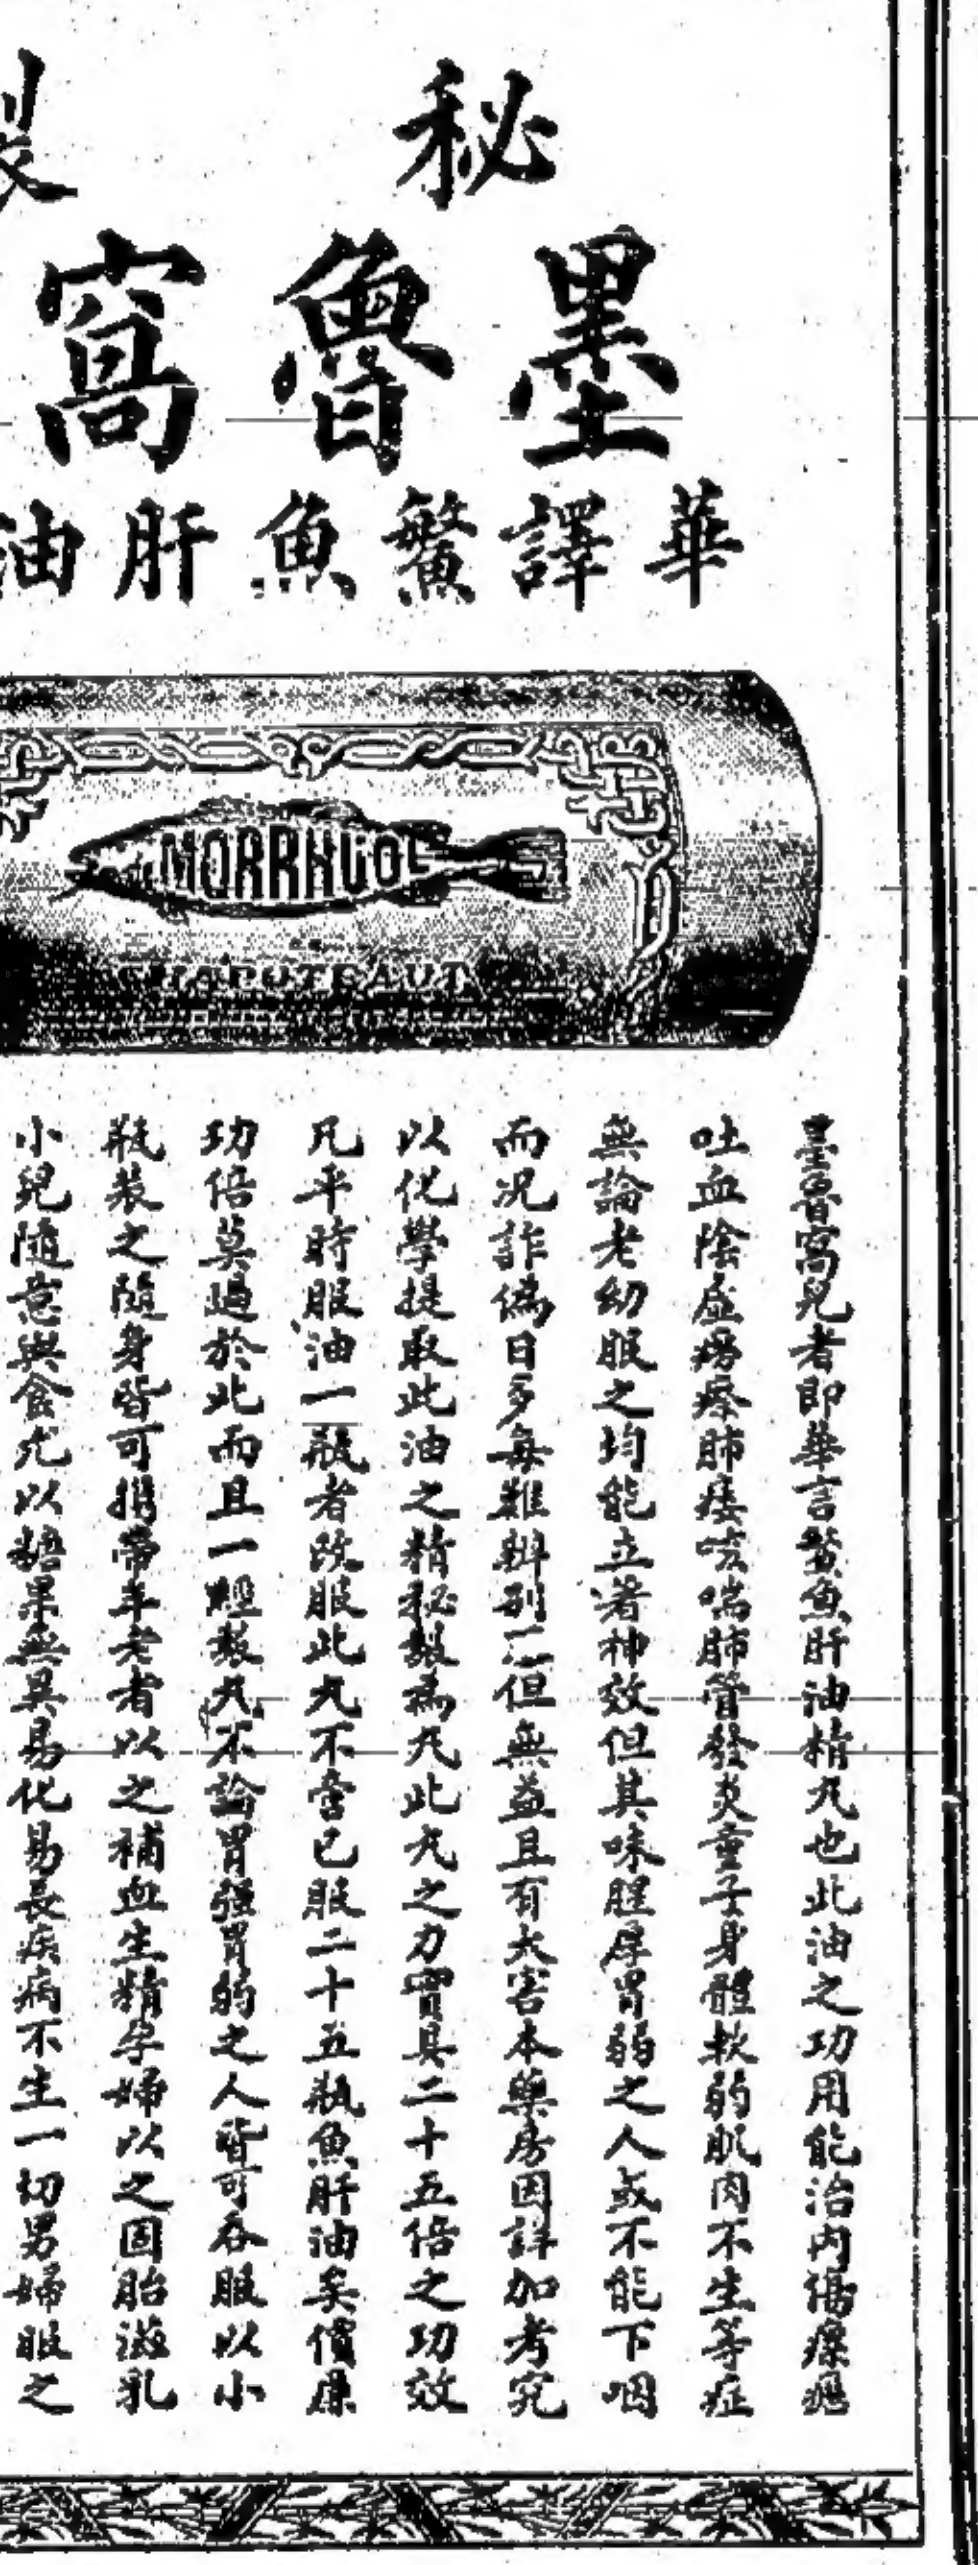 秘 製
墨魯窩
華譯鱉魚肝油
MORRHUOL
CHAPOTEAUT
墨魯窩兒者即華言鱉魚肝油精丸也此油之功用能治內傷瘰癧
吐血陰虛癆瘵肺痿咳喘肺管發炎童子身體軟弱肌肉不生等症
無論老幼服之均能立著神效但其味腥厚胃弱之人或不能下咽
而况詐偽日多每難辨别不但無益且有大害本藥房因詳加考究
以化學提取此油之精秘製為丸此丸之力實具二十五倍之功效
凡平時服油一瓶者改服此丸不啻已服二十五瓶魚肝油矣價廉
功倍莫過於此而且一經製丸不論胃強胃弱之人皆可吞服以小
瓶裝之隨身皆可携帶年老者以之補血生精孕婦以之固胎滋乳
小兒隨意與食尤以糖果無異易化易長疾病不生一切男婦服之